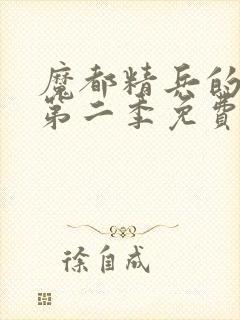 魔都精兵的
第二季免费
徐自成